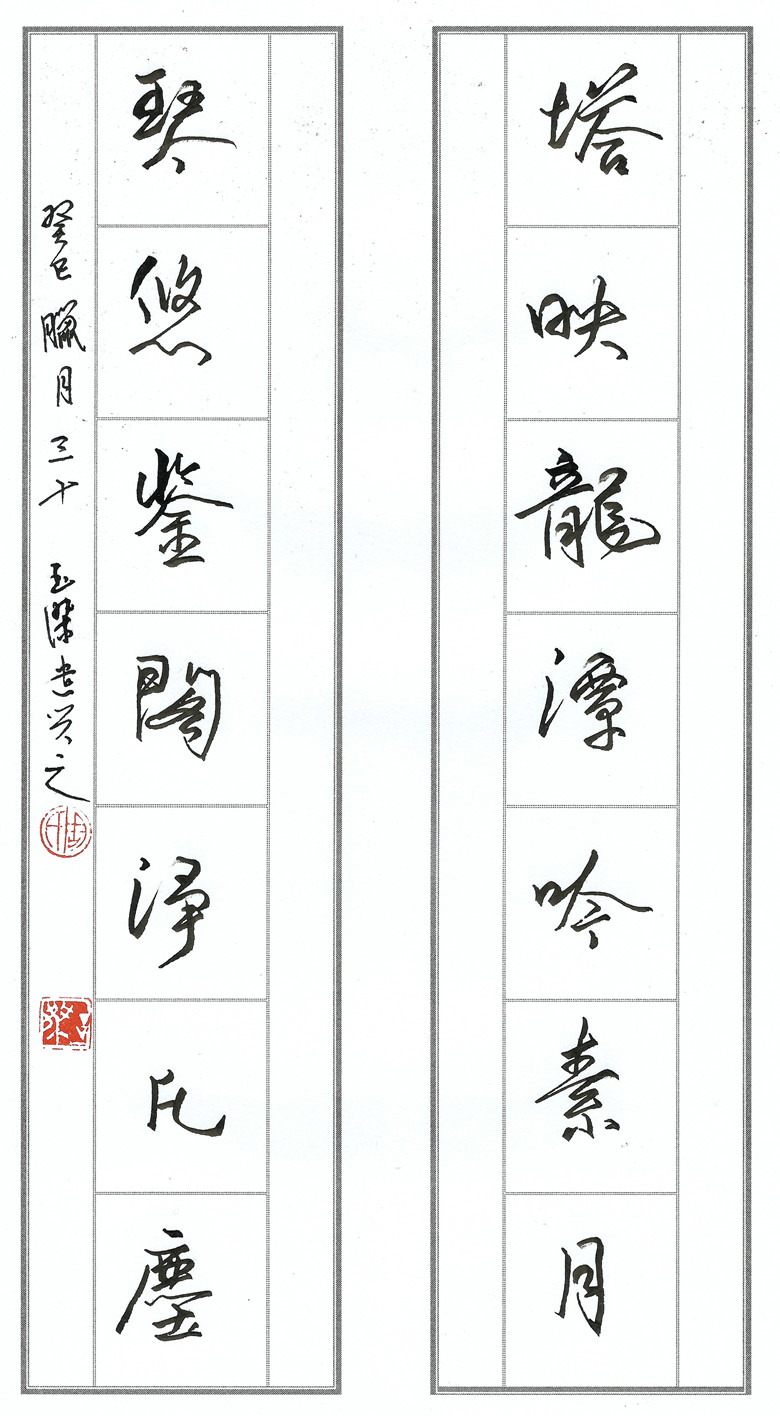 塔映龍潭吟素月
琴悠鑒閣淨凡塵
癸巳臘月三十 玉傑書於之